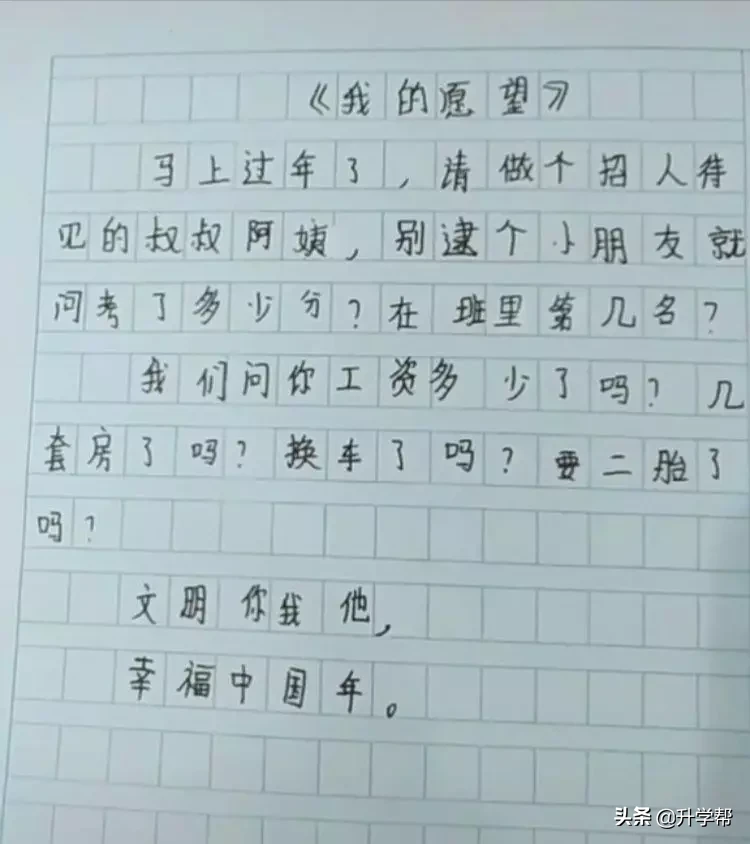 《我的愿望》
马上过年了，请做个招人待
见的叔叔阿姨，别逮个小朋友就
问考了多少分？在班里第几名？
我们问你工资多少了吗？几
套房了吗？换车了吗？要二胎了
吗？
文明你我他，
幸福中国年。
头条 @升学帮